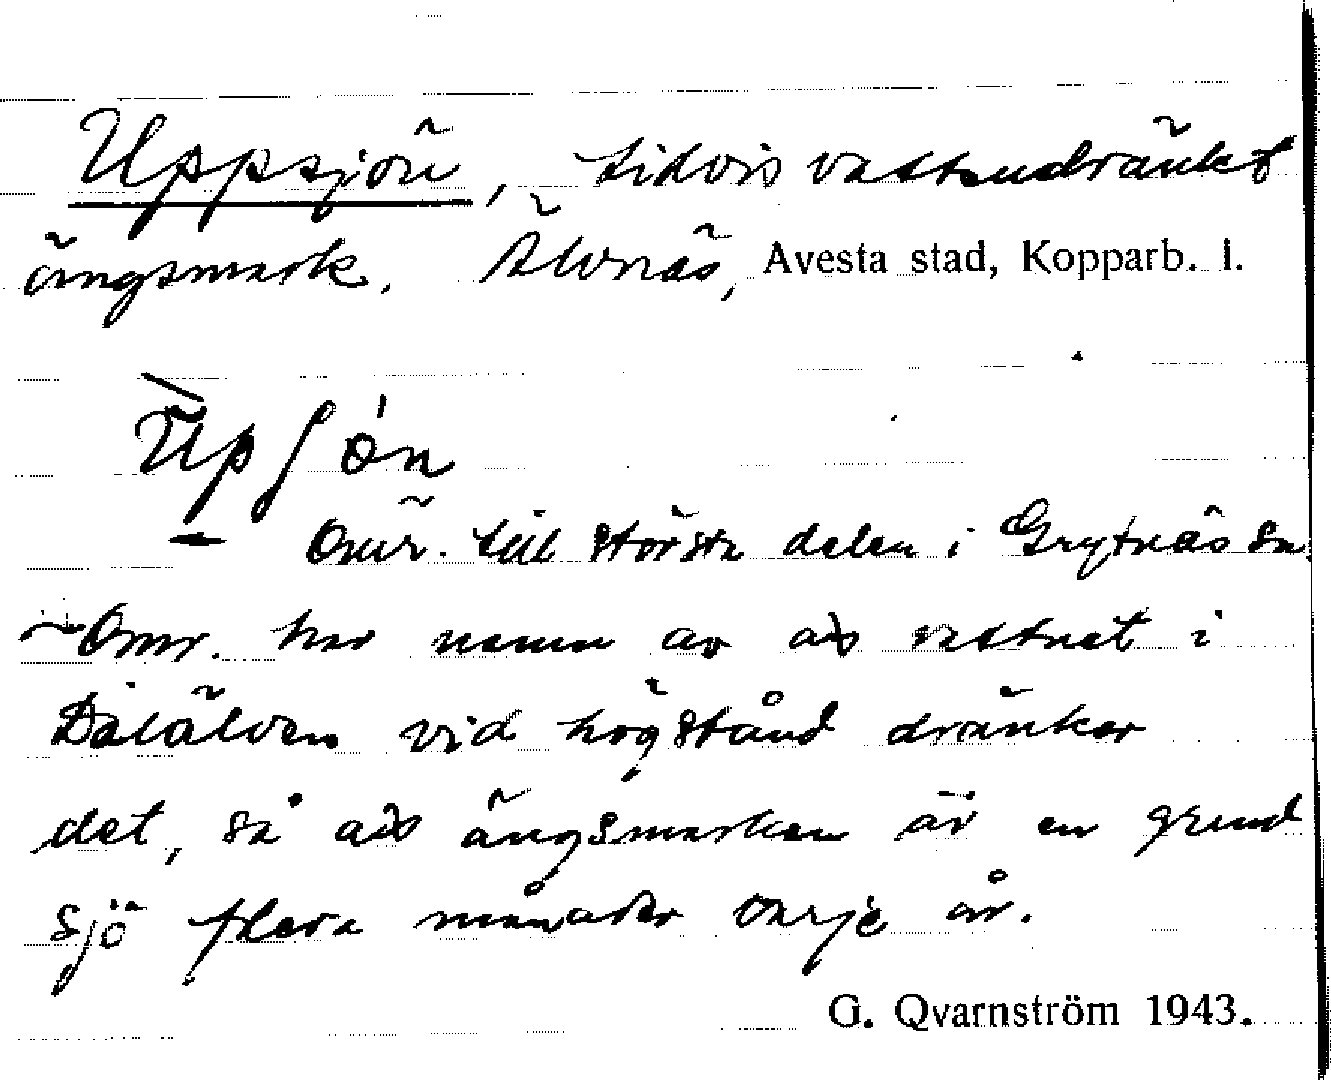 Uppsjön, tidvis vattendränkt
ängsmark. Älvnäs, Avesta stad, Kopparb. l.
Upʃön
Omr. till största delen i Grytnäs sn.
Omr. har namn av att vattnet i
Dalälven vid högstånd dränker
det, så att ängsmarken är en grund
sjö flera månader varje år.
G. Qvarnström 1943.